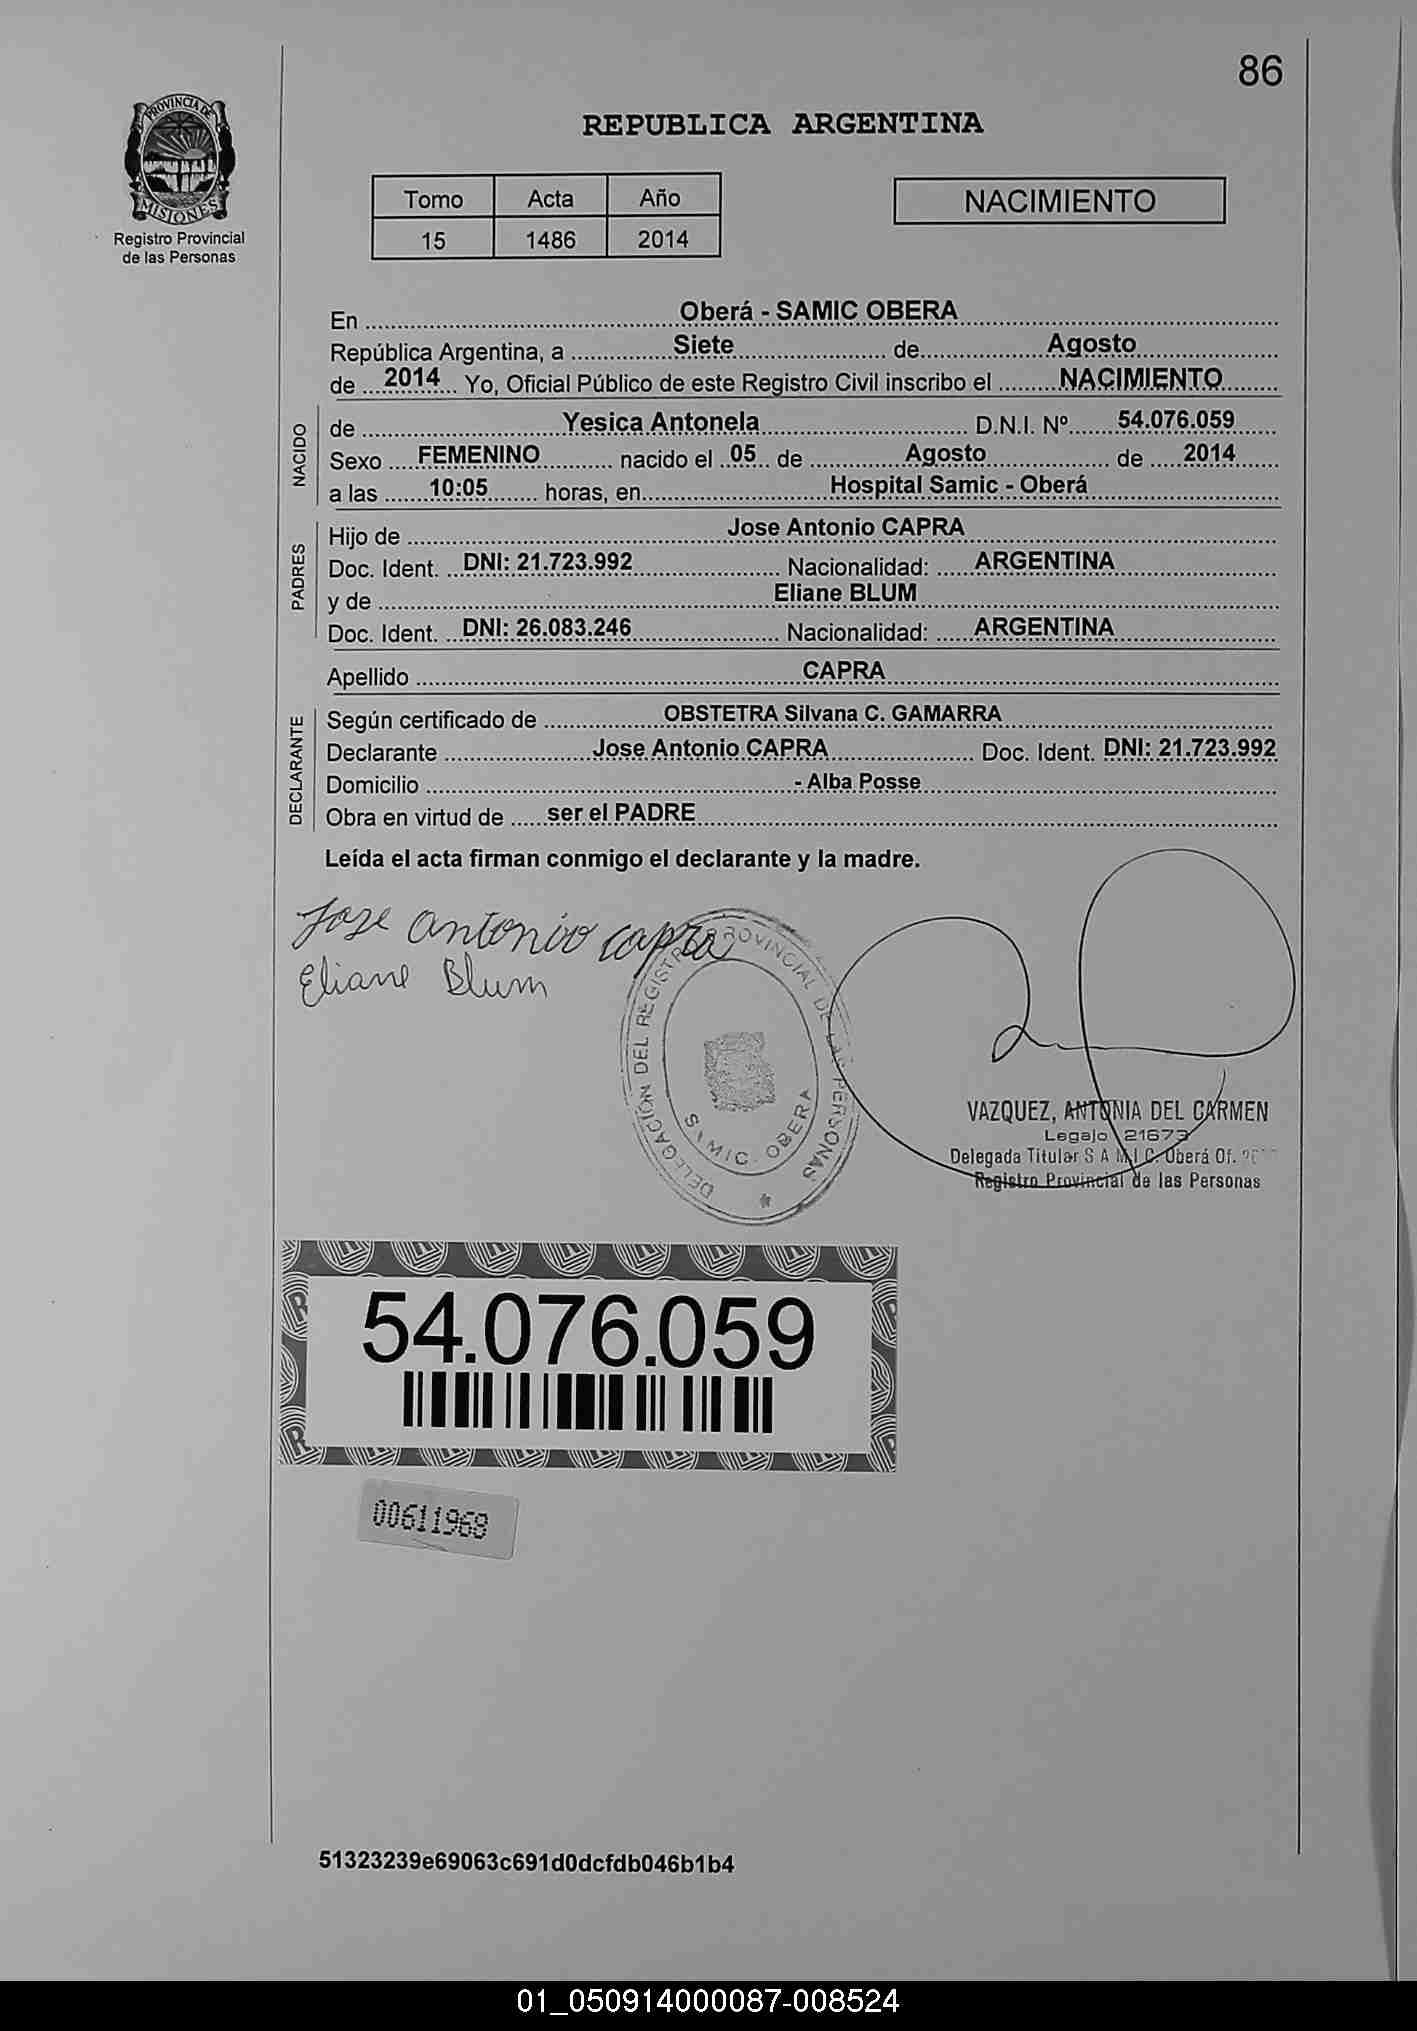 86
PROVINCIA DE
MISIONES
Registro Provincial
de las Personas
REPUBLICA ARGENTINA
Tomo Acta Año
15 1486 2014
NACIMIENTO
En Oberá - SAMIC OBERA
República Argentina, a Siete de Agosto
de 2014 Yo, Oficial Público de este Registro Civil inscribo el NACIMIENTO
NACIDO
de Yesica Antonela D.N.I. Nº 54.076.059
Sexo FEMENINO nacido el 05 de Agosto de 2014
a las 10:05 horas, en Hospital Samic - Oberá
PADRES
Hijo de Jose Antonio CAPRA
Doc. Ident. DNI: 21.723.992 Nacionalidad: ARGENTINA
y de Eliane BLUM
Doc. Ident. DNI: 26.083.246 Nacionalidad: ARGENTINA
Apellido CAPRA
DECLARANTE
Según certificado de OBSTETRA Silvana C. GAMARRA
Declarante Jose Antonio CAPRA Doc. Ident. DNI: 21.723.992
Domicilio - Alba Posse
Obra en virtud de ser el PADRE
Leída el acta firman conmigo el declarante y la madre.
Jose Antonio Capra
Eliane Blum
DELEGACIÓN DEL REGISTRO PROVINCIAL DE LAS PERSONAS
SAMIC. OBERA
VAZQUEZ, ANTONIA DEL CARMEN
Legajo 21673
Delegada Titular S A M I C. Oberá Of.
Registro Provincial de las Personas
54.076.059
00611968
51323239e69063c691d0dcfdb046b1b4
01_050914000087-008524